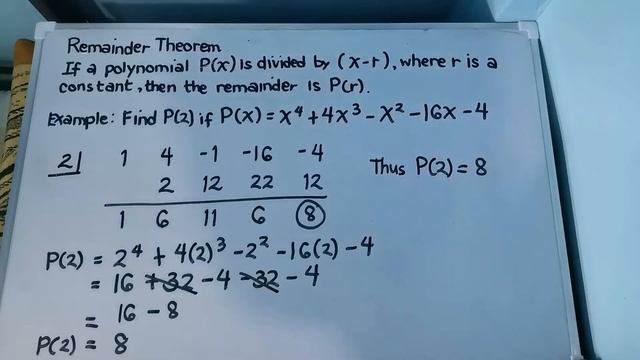 Remainder Theorem
If a polynomial P(x) is divided by (x-r), where r is a
constant, then the remainder is P(r).
Example: Find P(2) if P(x) = x⁴ + 4x³ - x² - 16x - 4
2| 1 4 -1 -16 -4
2 12 22 12
1 6 11 6 8
Thus P(2) = 8
P(2) = 2⁴ + 4(2)³ - 2² - 16(2) - 4
= 16 + 32 - 4 - 32 - 4
= 16 - 8
P(2) = 8